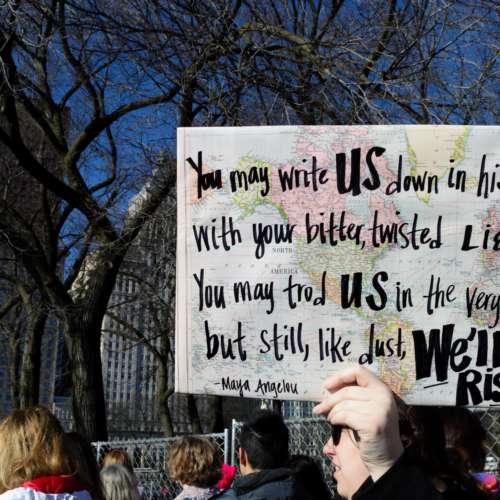 You may write US down in his
with your bitter, twisted Lie
You may trod US in the very
but still, like dust, We'll
Ris
-Maya Angelou
NORTH
AMERICA